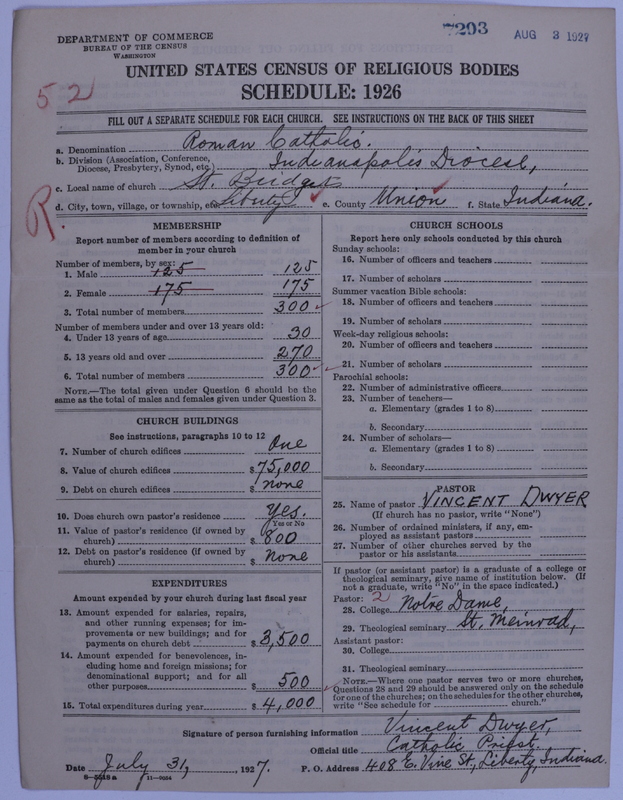 7203
AUG 3 1927
DEPARTMENT OF COMMERCE
BUREAU OF THE CENSUS
WASHINGTON
UNITED STATES CENSUS OF RELIGIOUS BODIES
SCHEDULE: 1926
52
FILL OUT A SEPARATE SCHEDULE FOR EACH CHURCH. SEE INSTRUCTIONS ON THE BACK OF THIS SHEET
a. Denomination Roman Catholic.
b. Division (Association, Conference, Diocese, Presbytery, Synod, etc.) Indianapolis Diocese,
c. Local name of church St. Bridgets
d. City, town, village, or township, etc. Liberty e. County Union f. State Indiana.
R.
MEMBERSHIP
Report number of members according to definition of
member in your church
Number of members, by sex:
1. Male 125 125
2. Female 175 175
3. Total number of members 300
Number of members under and over 13 years old:
4. Under 13 years of age 30
5. 13 years old and over 270
6. Total number of members 300
NOTE.—The total given under Question 6 should be
same as the total of males and females given under Question 3.
CHURCH BUILDINGS
See instructions, paragraphs 10 to 12
7. Number of church edifices One
8. Value of church edifices $75,000
9. Debt on church edifices $none
10. Does church own pastor's residence Yes.
Yes or No
11. Value of pastor's residence (if owned by
church) $800
12. Debt on pastor's residence (if owned by
church) $None
EXPENDITURES
Amount expended by your church during last fiscal year
13. Amount expended for salaries, repairs,
and other running expenses; for im-
provements or new buildings; and for
payments on church debt $3,500
14. Amount expended for benevolences, in-
cluding home and foreign missions; for
denominational support; and for all
other purposes $500
15. Total expenditures during year $4,000
CHURCH SCHOOLS
Report here only schools conducted by this church
Sunday schools:
16. Number of officers and teachers
17. Number of scholars
Summer vacation Bible schools:
18. Number of officers and teachers
19. Number of scholars
Week-day religious schools:
20. Number of officers and teachers
21. Number of scholars
Parochial schools:
22. Number of administrative officers
23. Number of teachers—
a. Elementary (grades 1 to 8)
b. Secondary
24. Number of scholars—
a. Elementary (grades 1 to 8)
b. Secondary
PASTOR
25. Name of pastor VINCENT DWYER
(If church has no pastor, write "None")
26. Number of ordained ministers, if any, em-
ployed as assistant pastors
27. Number of other churches served by the
pastor or his assistants
If pastor (or assistant pastor) is a graduate of a college or
theological seminary, give name of institution below. (If
not a graduate, write "No" in the space indicated.)
Pastor: 2
28. College Notre Dame,
29. Theological seminary St. Meinrad,
Assistant pastor:
30. College
31. Theological seminary
NOTE.—Where one pastor serves two or more churches,
Questions 28 and 29 should be answered only on the schedule
for one of the churches; on the schedules for the other churches,
write "See schedule for church."
Signature of person furnishing information Vincent Dwyer,
Official title Catholic Priest.
Date July 31, 1927. P. O. Address 408 E. Vine St., Liberty, Indiana.